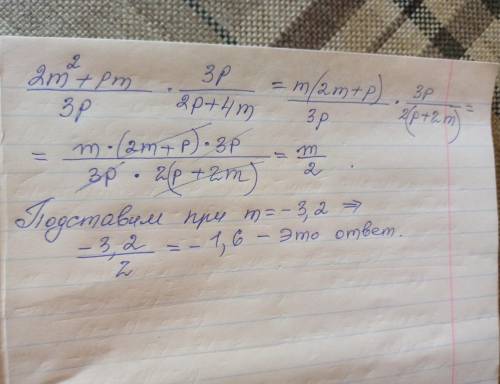 (2m² + pm)/(3p) · (3p)/(2p+4m) = (m(2m+p))/(3p) · (3p)/(2(p+2m)) =
= (m·(2m+p)·3p)/(3p · 2(p+2m)) = m/2 .
Подставим при m=-3,2 ⇒
(-3,2)/2 = -1,6 - Это ответ.